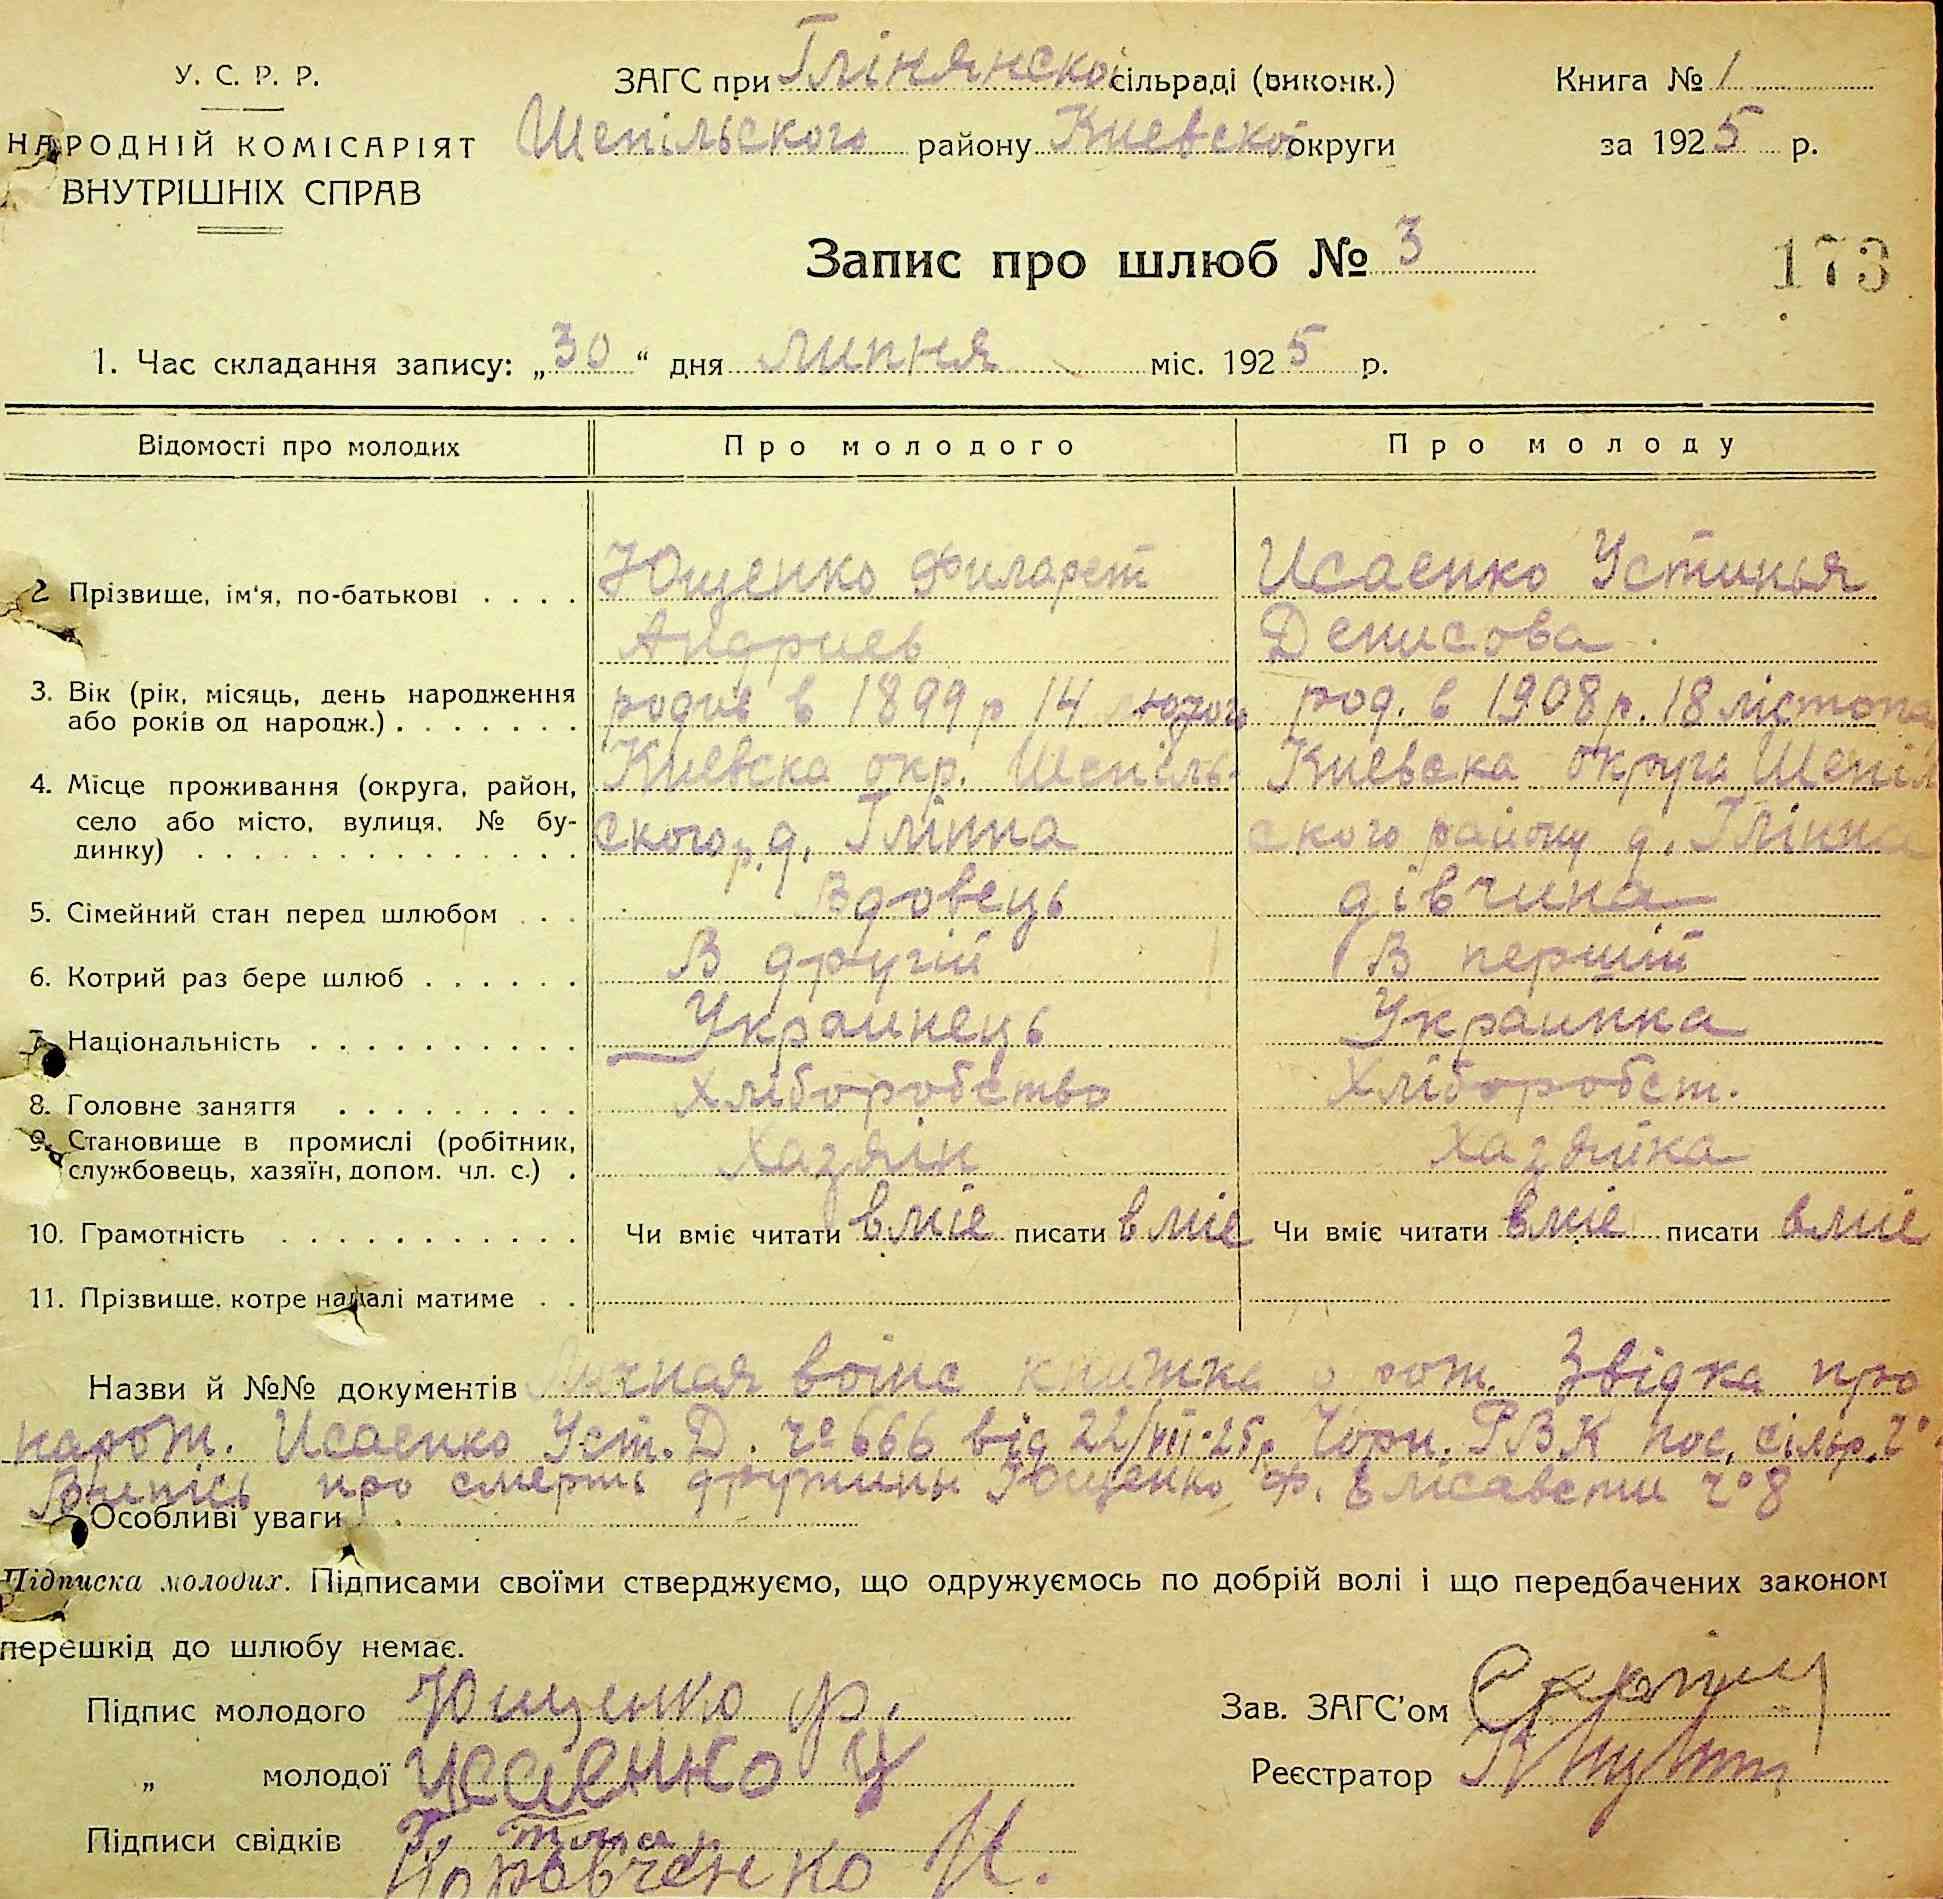 У. С. Р. Р.
НАРОДНІЙ КОМІСАРІЯТ
ВНУТРІШНІХ СПРАВ
ЗАГС при Глінянской сільраді (виконк.)
Шепільского району Киевской округи
Книга № 1
за 1925 р.
Запис про шлюб № 3
173
1. Час складання запису: „30“ дня липня міс. 1925 р.
Відомості про молодих Про молодого Про молоду
2 Прізвище, ім'я, по-батькові . . . . Ющенко Филарет Исаенко Устинья
Андриев Денисова
3. Вік (рік, місяць, день народження родив в 1899 р 14 лютого род. в 1908 р. 18 лістопа
або років од народж.) . . . . . . .
4. Місце проживання (округа, район, Киевска окр. Шепіль- Киевска округа Шепіл
село або місто, вулиця, № бу- ского р. д. Глінна ского району д. Глінна
динку) . . . . . . . . . . . . . .
5. Сімейний стан перед шлюбом . . . Вдовець дівчина
6. Котрий раз бере шлюб . . . . . . В другій В перший
7. Національність . . . . . . . . . . Украинець Украинка
8. Головне заняття . . . . . . . . . Хліборобство Хліборобст.
9. Становище в промислі (робітник, Хазяїн Хазяйка
службовець, хазяїн, допом. чл. с.) .
10. Грамотність . . . . . . . . . . . Чи вміє читати вміе писати вміе Чи вміє читати вміе писати вміе
11. Прізвище, котре надалі матиме . .
Назви й №№ документів Личная воінс книжка Звідка про
нарож. Исаенко Уст. Д. чо 666 від 22/VII-25р Чорн. РВК пос. сільр. чо
Випісь про смерть дружины Ющенко Ф. Елісавети чо 8
Особливі уваги
Підписка молодих. Підписами своїми стверджуємо, що одружуємось по добрій волі і що передбачених законом
перешкід до шлюбу немає.
Підпис молодого Ющенко Ф.
„ молодої Исаенко У
Підписи свідків
Кравченко И.
Зав. ЗАГС'ом
Реєстратор